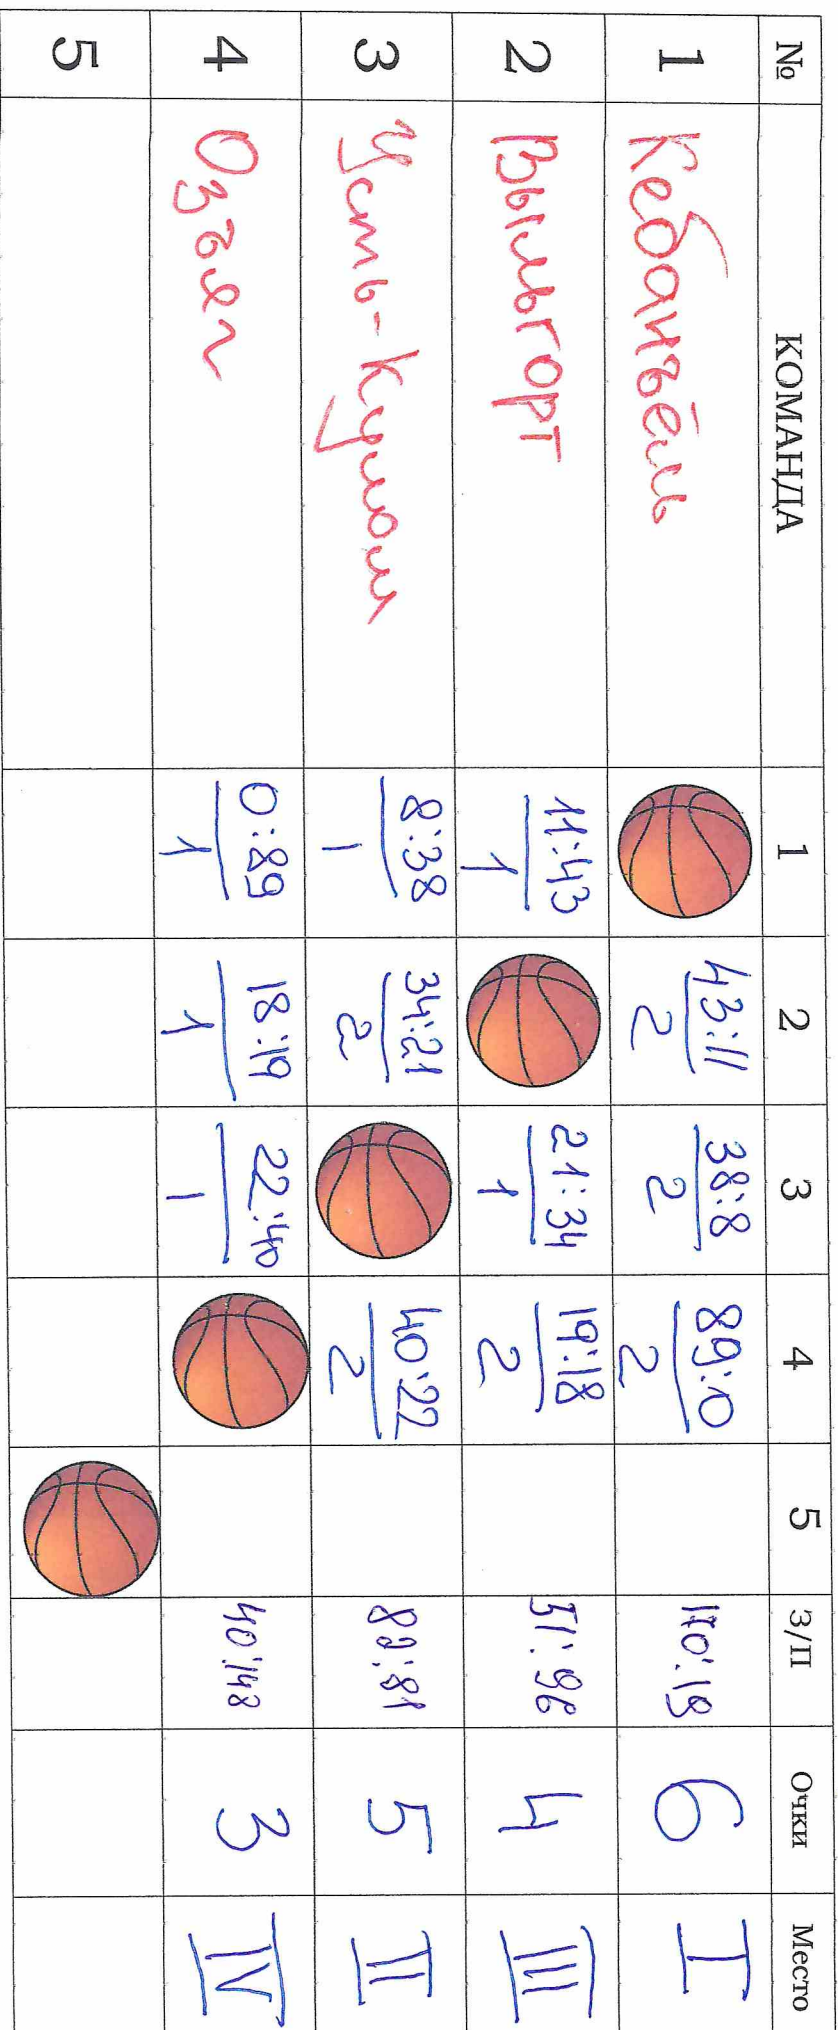 № КОМАНДА 1 2 3 4 5 З/П Очки Место
1 Кебанъёль 43:11 2 38:8 2 89:0 2 170:19 6 I
2 Выльгорт 11:43 1 21:34 1 19:18 2 51:96 4 III
3 Усть-Кулом 8:38 1 34:21 2 40:22 2 82:81 5 II
4 Озъяг 0:89 1 18:19 1 22:40 1 40:148 3 IV
5